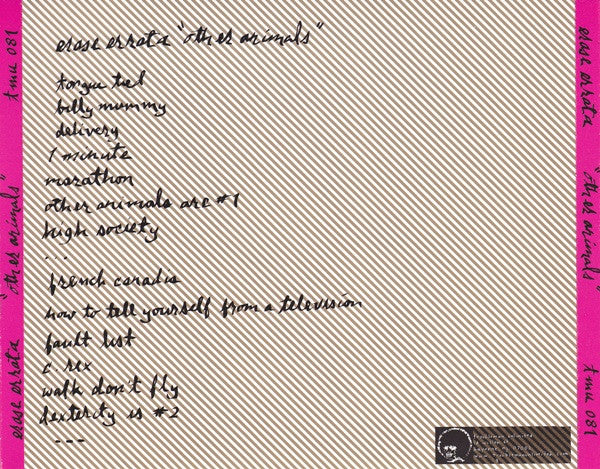 erase errata "other animals"
tongue tied
billy mummy
delivery
1 minute
marathon
other animals are #1
high society
...
french canadia
how to tell yourself from a television
fault list
c. rex
walk don't fly
dexterity is #2
---
erase errata "other animals" tmu 081
erase errata "other animals" tmu 081